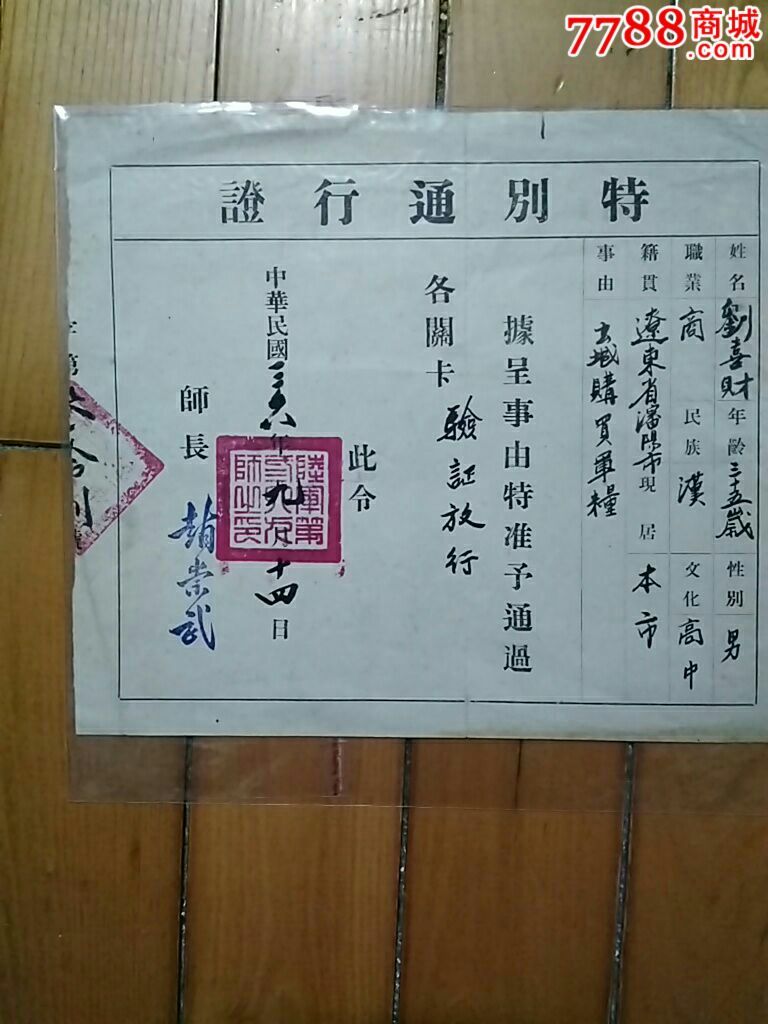 7788商城
.com
特別通行證
姓名 劉喜財 年齡 三十五歲 性別 男
職業 商 民族 漢 文化 高中
籍貫 遼東省瀋陽市 現居 本市
事由 出城購買軍糧
據呈事由特准予通過
各關卡 驗証放行
此令
中華民國三十六年九月十四日
師長 趙崇武
字第
陸軍第
師之印